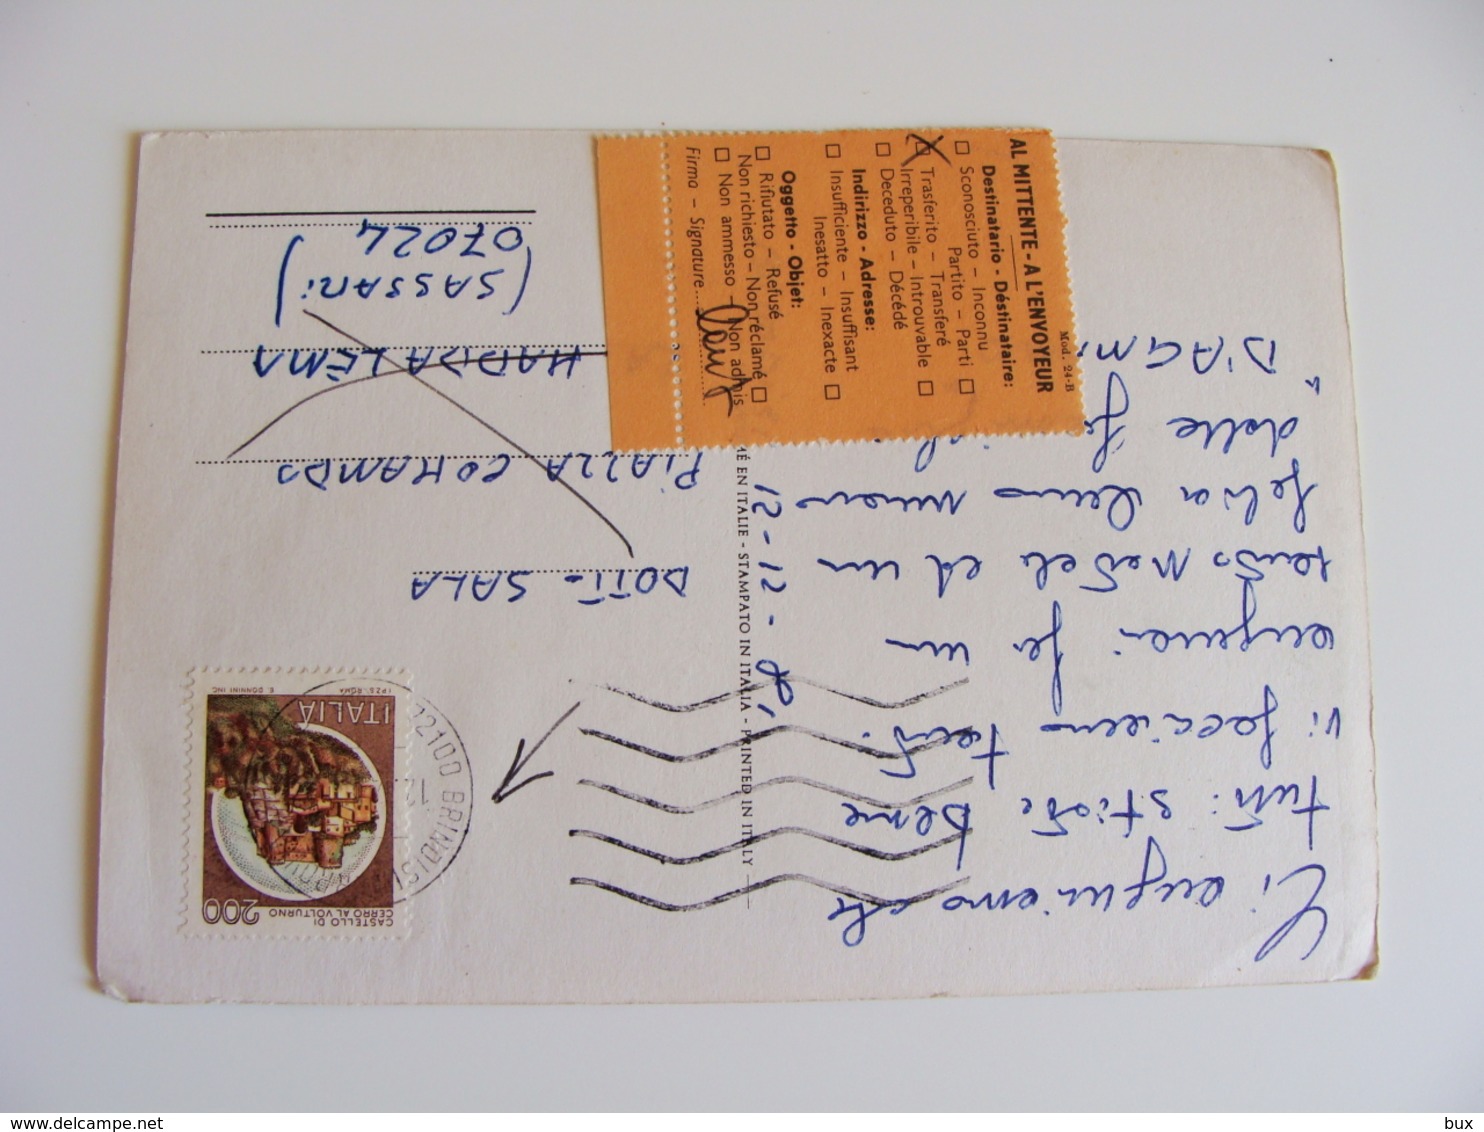 Ci auguriamo che
tutti stiate bene
Vi facciamo tanti
auguri per un
Natale ed un
felice
delle
D'AG
21-12-
MÉ EN ITALIE - STAMPATO IN ITALIA - PRINTED IN ITALY
DOTT. SALA
PIAZZA COMANDO
MADDALENA
(SASSARI)
07024
Mod. 24-B
AL MITTENTE - A L'ENVOYEUR
Destinatario - Déstinataire:
□ Sconosciuto - Inconnu
Partito - Parti □
□ Trasferito - Transferé
Irreperibile - Introuvable □
□ Deceduto - Décédé
Indirizzo - Adresse:
□ Insufficiente - Insuffisant
Inesatto - Inexacte □
Oggetto - Objet:
□ Rifiutato - Refusé
Non richiesto - Non réclamé □
□ Non ammesso - Non admis
Firma - Signature
ITALIA
I.P.Z.S. ROMA
E. DONNINI INC.
CASTELLO DI
CERRO AL VOLTURNO
200
72100 BRINDISI
12
bux
bux